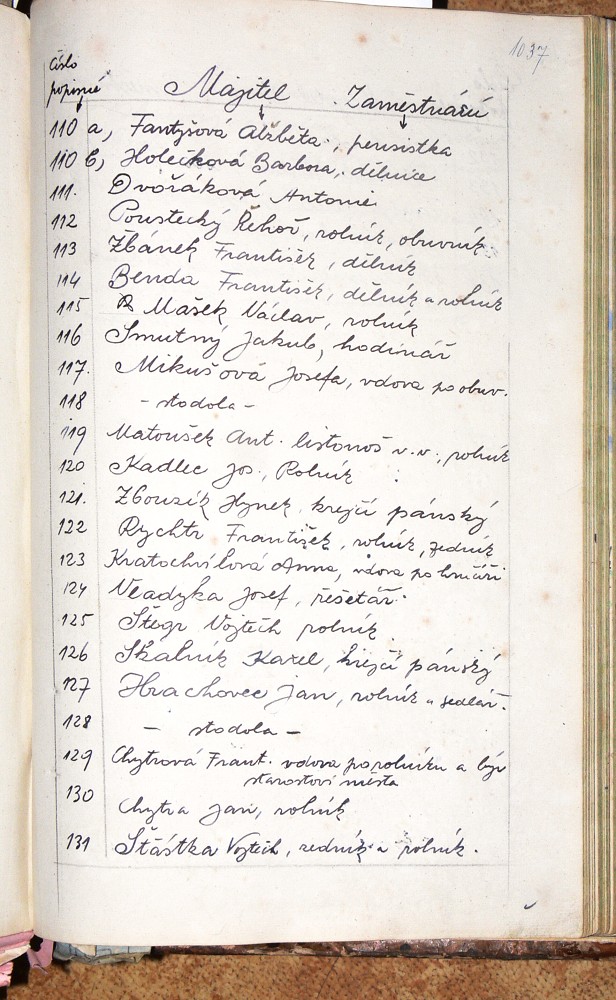 1037
Číslo
popisné Majitel Zaměstnání
110 a, Fantyšová Alžběta, pensistka
110 b, Holečková Barbora, dělnice
111. Dvořáková Antonie
112 Poustecký Řehoř, rolník, obuvník.
113 Žbánek František, dělník
114 Benda František, dělník a rolník
115 Mašek Václav, rolník
116 Smutný Jakub, hodinář
117. Mikušová Josefa, vdova po obuv.
118 - stodola -
119 Matoušek Ant. listonoš v.v., rolník
120 Kadlec Jos., Rolník
121. Zbouzík Hynek krejčí pánský
122 Rychtr František, rolník, zedník
123 Kratochvílová Anna, vdova po hrnčíři
124 Vladyka Josef, řešetář.
125 Štegr Vojtěch rolník
126 Skalník Karel, krejčí pánský
127 Hrachovec Jan, rolník a sedlář.
128 - stodola -
129 Chytrová Frant. vdova po rolníku a býv
starostovi města
130 Chytra Jan, rolník
131 Šťástka Vojtěch, zedník a rolník.